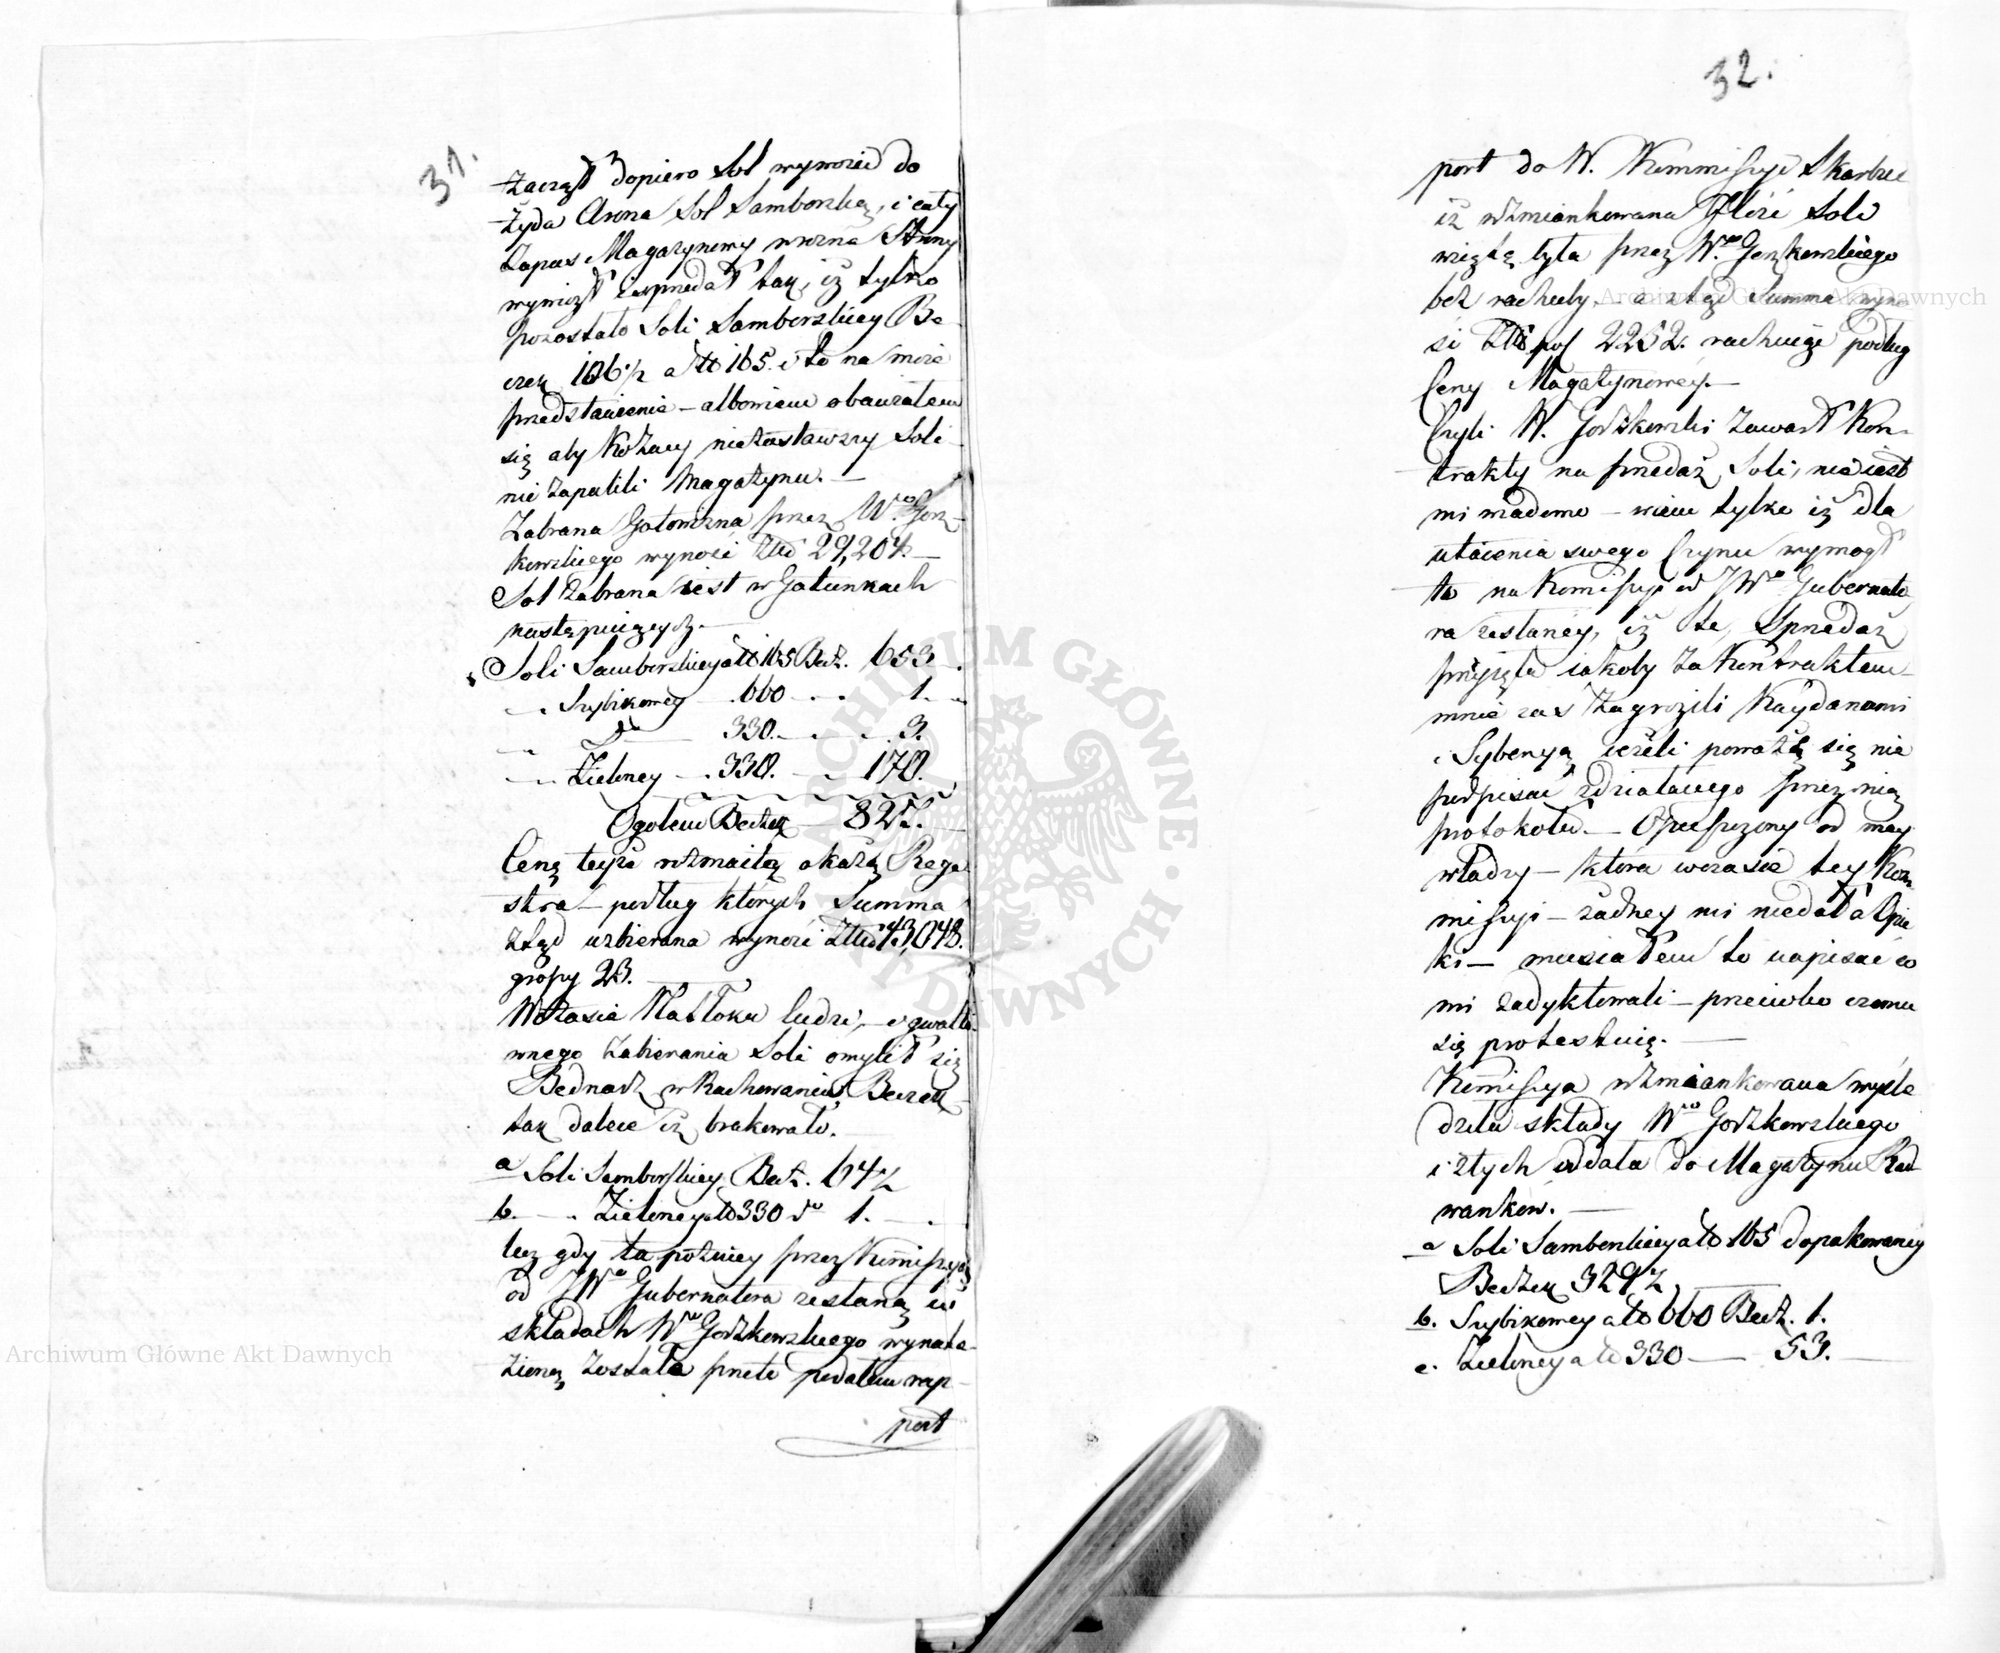 31.
zaczął dopiero Sól wynosić do
żyda Arona Sól Samborską, i cały
zapas Magazynowy można
wyniosł i sprzedał tak, iż tylko
pozostało Soli Samborskiey Be
czek 106 1/2 a lb 165. i to na moie
przedstawienie – albowiem obawiałem
się aby Kozacy niezastawszy Soli
nie zapalili Magazynu. –
Zabrana Gotowizna przez Wgo Gorz-
kowskiego wynosi Złł 29,204. –
Sól zabrana iest w Gatunkach
następuiących. –
Soli Samborskiey a lb 165 Becz. 653 –.
– . Szybikowey – . 660 – . . 1. –
do – 330. – . – . 3.
– Zieloney – . 330. – . 170.
Ogołem Beczek – 827. –
Cenę teyże rozmaitą okażą Rege
stra – podług których Summa
ztąd uzbierana wynosi Złł 43,048.
groszy 23. –
W czasie Natłoku ludzi, – i gwałto-
wnego zabierania Soli omylił się
Bednarz w Rachowaniu Beczek
tak dalece iż brakowało. –
a Soli Samborskiey Becz. 64 1/2
b. – . Zieloney a lb 330 do 1. – .
lecz gdy ta pózniey przez Kommiszyą
od JWo Gubernatora zesłaną w
składach Wgo Gorzkowskiego wynale-
zioną została przeto podałem rap-
port
32.
port do W. Kommiszyi Skarbu
iż wzmiankowana Ilość Soli
wziętą była przez Wgo Gorzkowskiego
bez rachuby – a ztąd Summa wyno
si Złł pol 2252. rachuiąc podług
Ceny Magazynowey. –
Czyli W. Gorzkowski zawarł Kon-
trakty na przedaż Soli, nie iest
mi wiadomo – wiem tylko iż dla
utaienia swego Czynu wymogł
to na Komiszyi od JWo Gubernato
ra zesłaney, iż tę Sprzedaż
przyięła iakoby za Kontraktem
mnie zas zagrozili Kaydanami
i Syberyą ieżeli poważę się nie
podpisać zdziałanego przez nią
protokołu. – Opuszczony od mey
władzy – która wczasie tey Kom
miszyi – żadney mi niedała Opie
ki – musiałem to napisać co
mi zadyktowali – przeciwko czemu
się protestuię. –
Kommiszya wzmiankowana wyśle
dziła składy Wgo Gorzkowskiego
i z tych oddała do Magazynu Rad
wankow. –
a Soli Samborskiey a lb 165 dopakowaney
Beczek 329 1/2 –
b. Szybikowey a lb 660 Becz. 1.
c. Zieloney a lb 330 – 53. –
Archiwum Główne Akt Dawnych
Archiwum Główne Akt Dawnych
ARCHIWUM GŁÓWNE AKT DAWNYCH